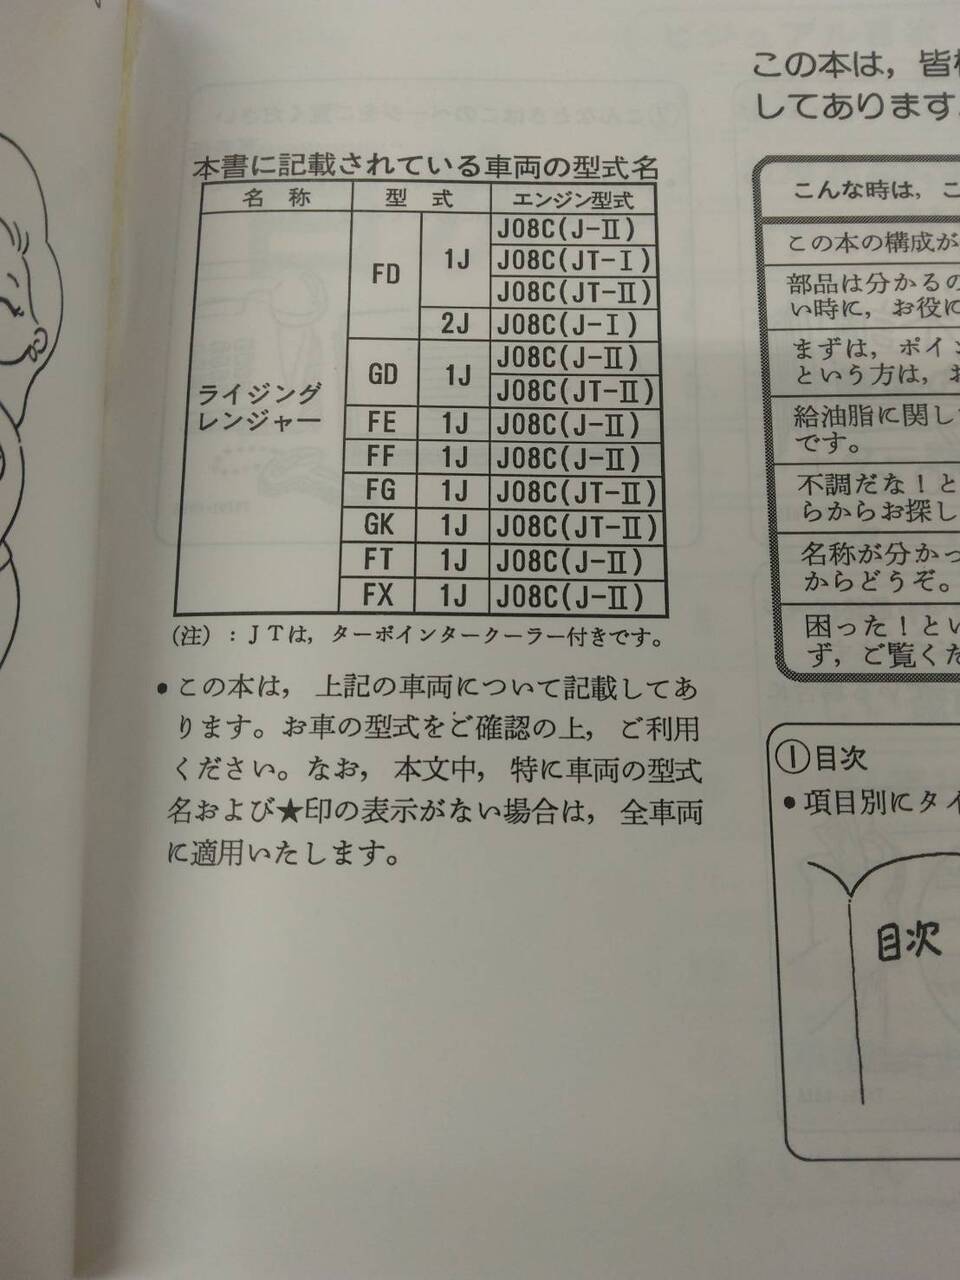 本書に記載されている車両の型式名
名 称 型 式 エンジン型式
ライジング
レンジャー
FD 1J J08C(J-Ⅱ)
J08C(JT-Ⅰ)
J08C(JT-Ⅱ)
2J J08C(J-Ⅰ)
GD 1J J08C(J-Ⅱ)
J08C(JT-Ⅱ)
FE 1J J08C(J-Ⅱ)
FF 1J J08C(J-Ⅱ)
FG 1J J08C(JT-Ⅱ)
GK 1J J08C(JT-Ⅱ)
FT 1J J08C(J-Ⅱ)
FX 1J J08C(J-Ⅱ)
(注):JTは,ターボインタークーラー付きです。
•この本は,上記の車両について記載してあ
ります。お車の型式をご確認の上,ご利用
ください。なお,本文中,特に車両の型式
名および★印の表示がない場合は,全車両
に適用いたします。
この本は,皆
してあります
こんな時は,こ
この本の構成が
部品は分かるの
い時に,お役に
まずは,ポイン
という方は,お
給油脂に関し
です。
不調だな!と
らからお探し
名称が分かっ
からどうぞ。
困った!とい
ず,ご覧くだ
①目次
•項目別にタイ
目次